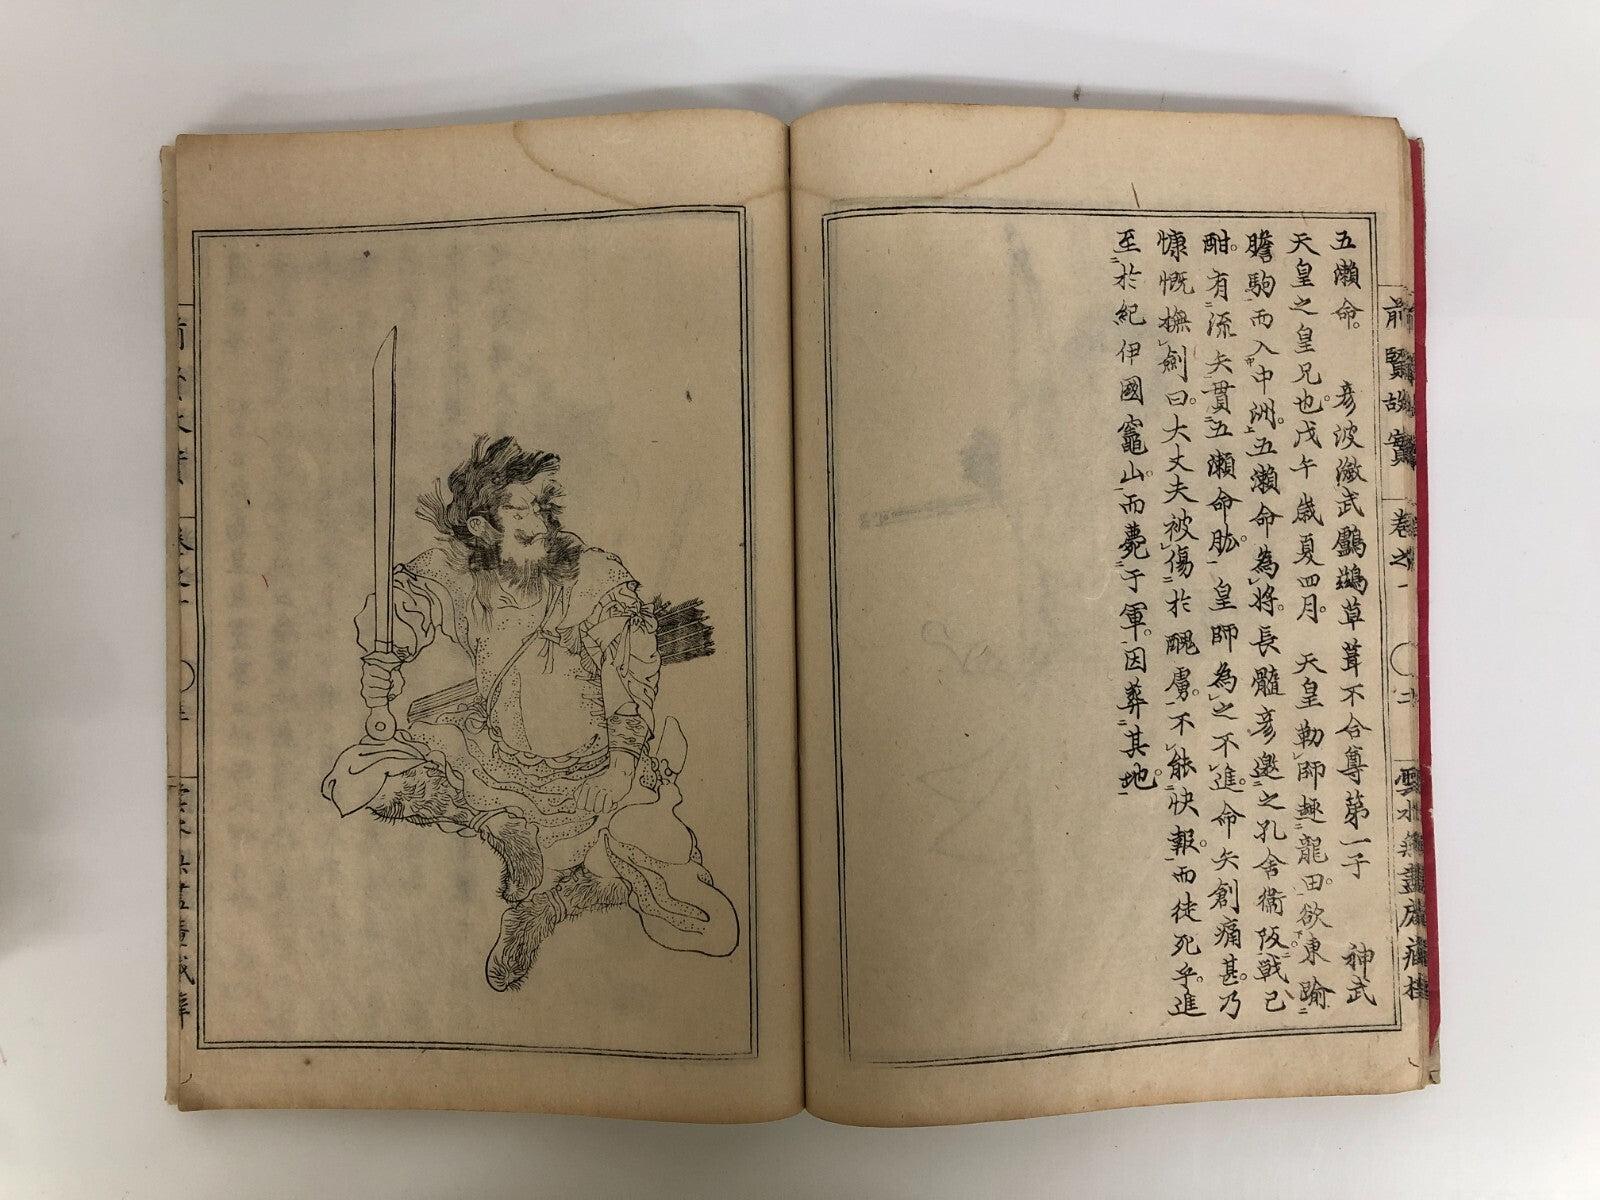 前賢故實 卷之一 〇二
五瀬命。 彦波瀲武鸕鷀草葺不合尊第一子 神武
天皇之皇兄也。戊午歳夏四月。 天皇勒師趣龍田。欲東踰
膽駒而入中洲。五瀬命為將。長髓彦邀之孔舍衛阪。戰已
酣。有流矢貫五瀬命肱。 皇師為之不進。命矢創痛甚。乃
慷慨撫劍曰。大丈夫被傷於醜虜。不能快報。而徒死乎。進
至於紀伊國竈山。而薨于軍。因葬其地。